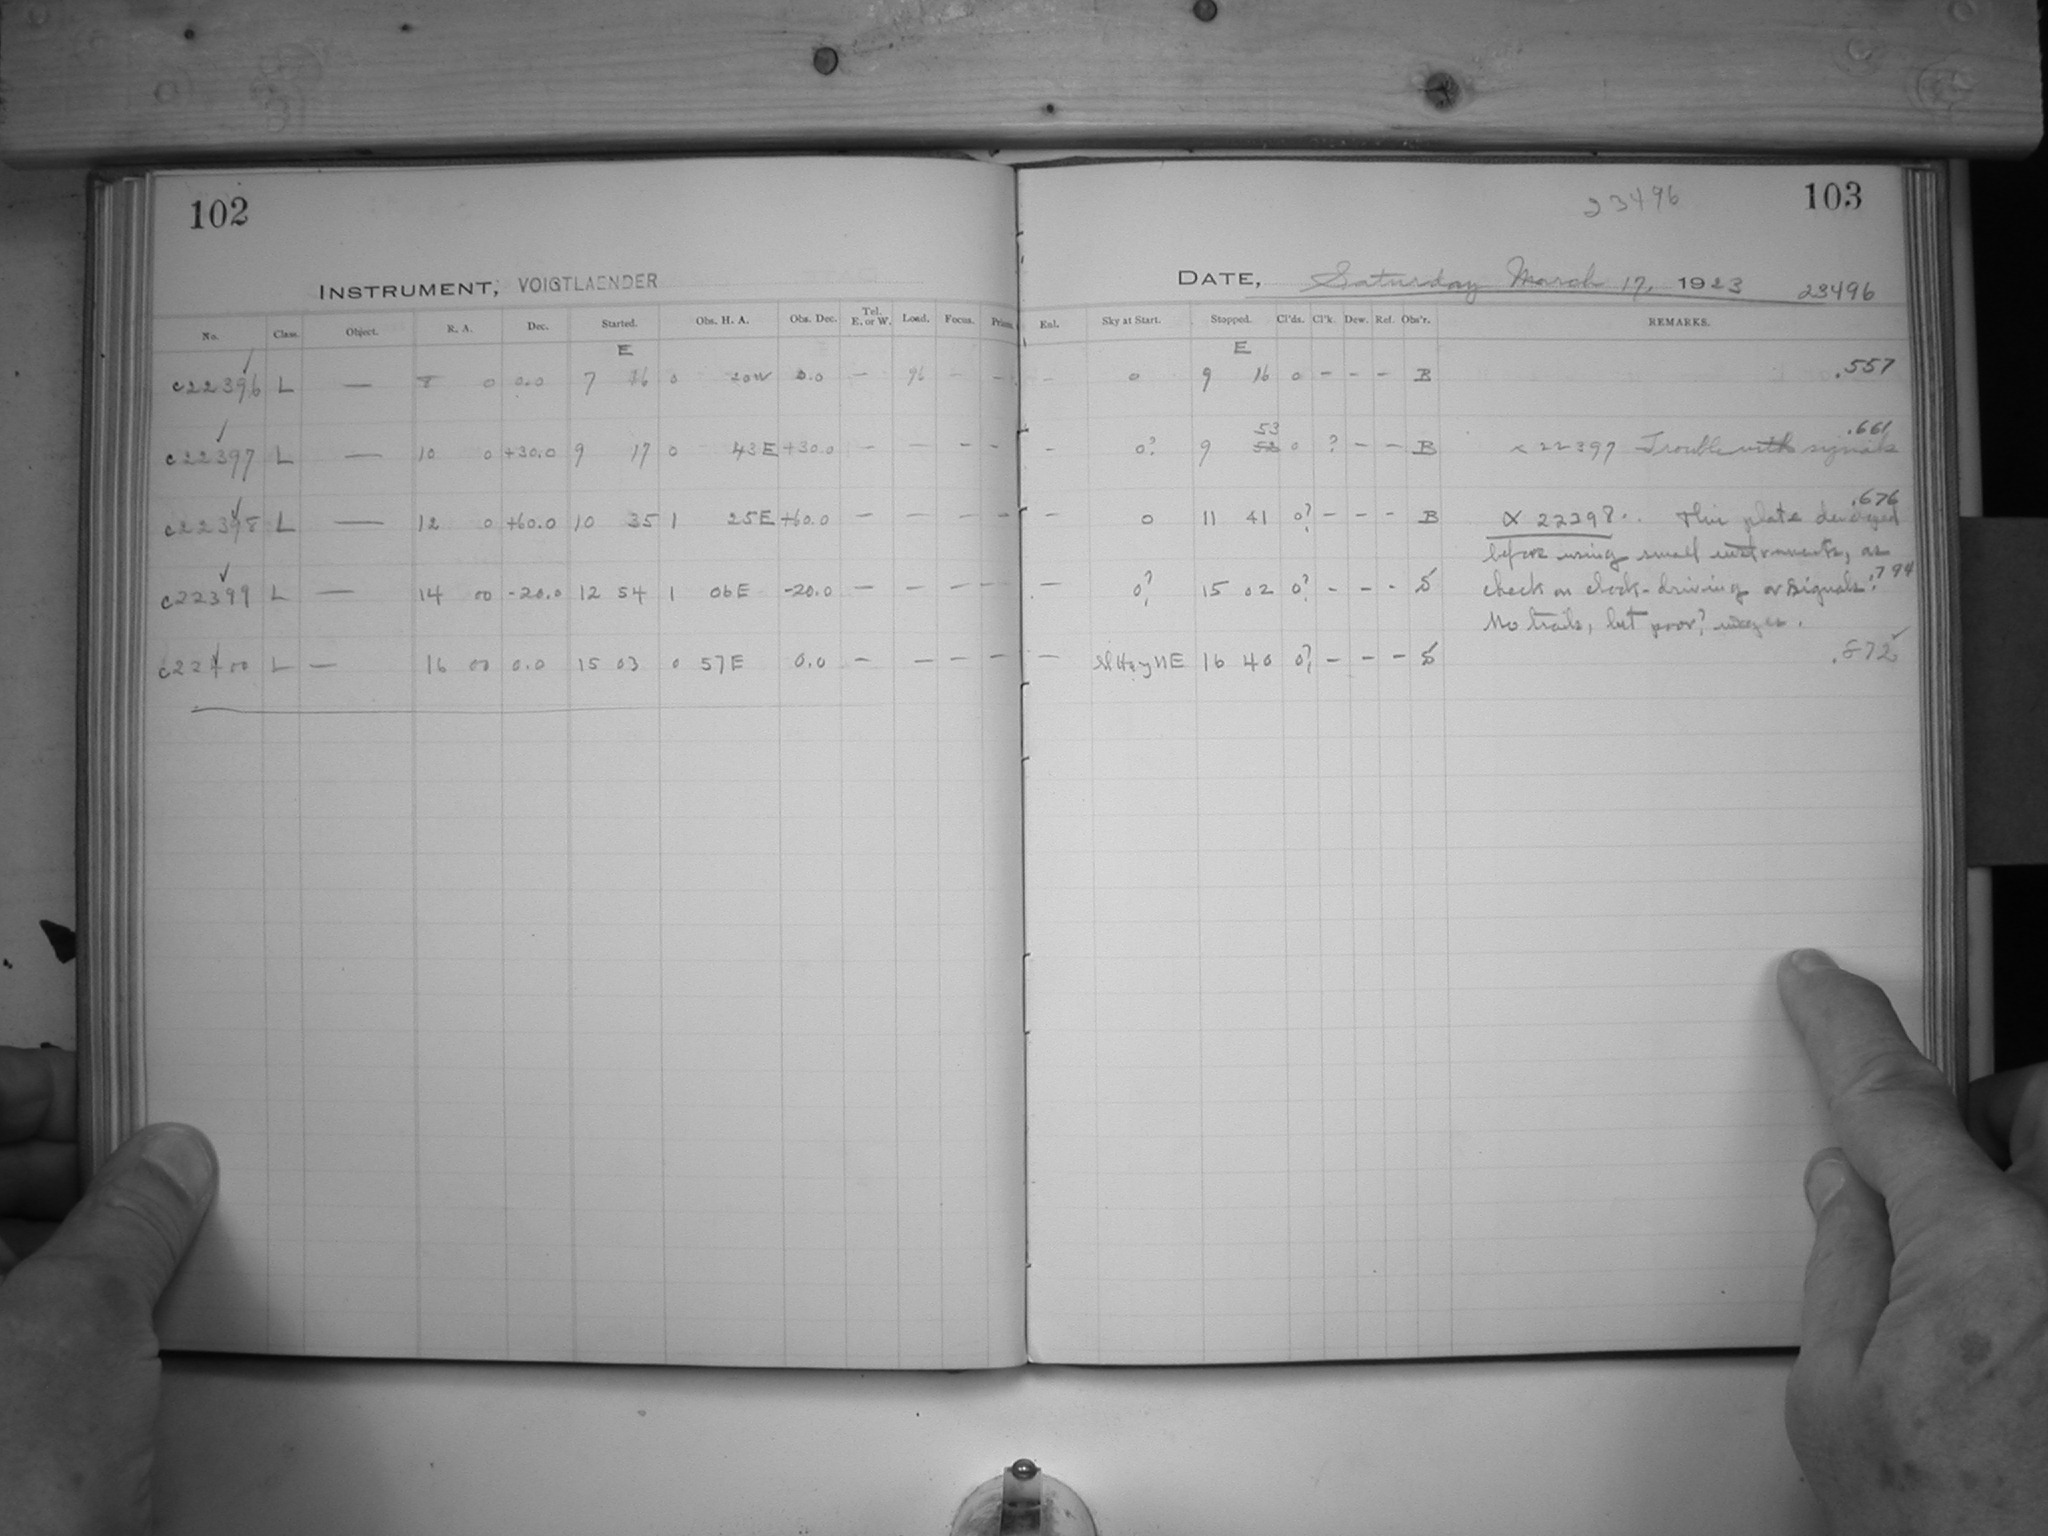 102
INSTRUMENT, VOIGTLAENDER
No. Class. Object. R. A. Dec. Started. Obs. H. A. Obs. Dec. Tel. E. or W. Load. Focus. Prism.
E
c22396 L — 8 0 0.0 7 16 0 20W 0.0 — 96 - -
c22397 L — 10 0 +30.0 9 17 0 43E +30.0 — — - -
c22398 L — 12 0 +60.0 10 35 1 25E +60.0 — — — -
c22399 L — 14 00 -20.0 12 54 1 06E -20.0 — — — —
c22400 L — 16 00 0.0 15 03 0 57E 0.0 — — — —
23496 103
DATE, Saturday March 17, 1923 23496
Enl. Sky at Start. Stopped. Cl'ds. Cl'k. Dew. Ref. Obs'r. REMARKS.
E
- 0 9 16 0 - - - B .557
53 .661
- 0? 9 52 0 ? - - B x 22397 Trouble with signals
.676
— 0 11 41 0? - - - B X 22398. This plate developed
before using small instruments, as
— 0? 15 02 0? - - - S check on clock-driving or signals. .794
No trails, but poor? images.
— NE 16 40 0? - - - S .872